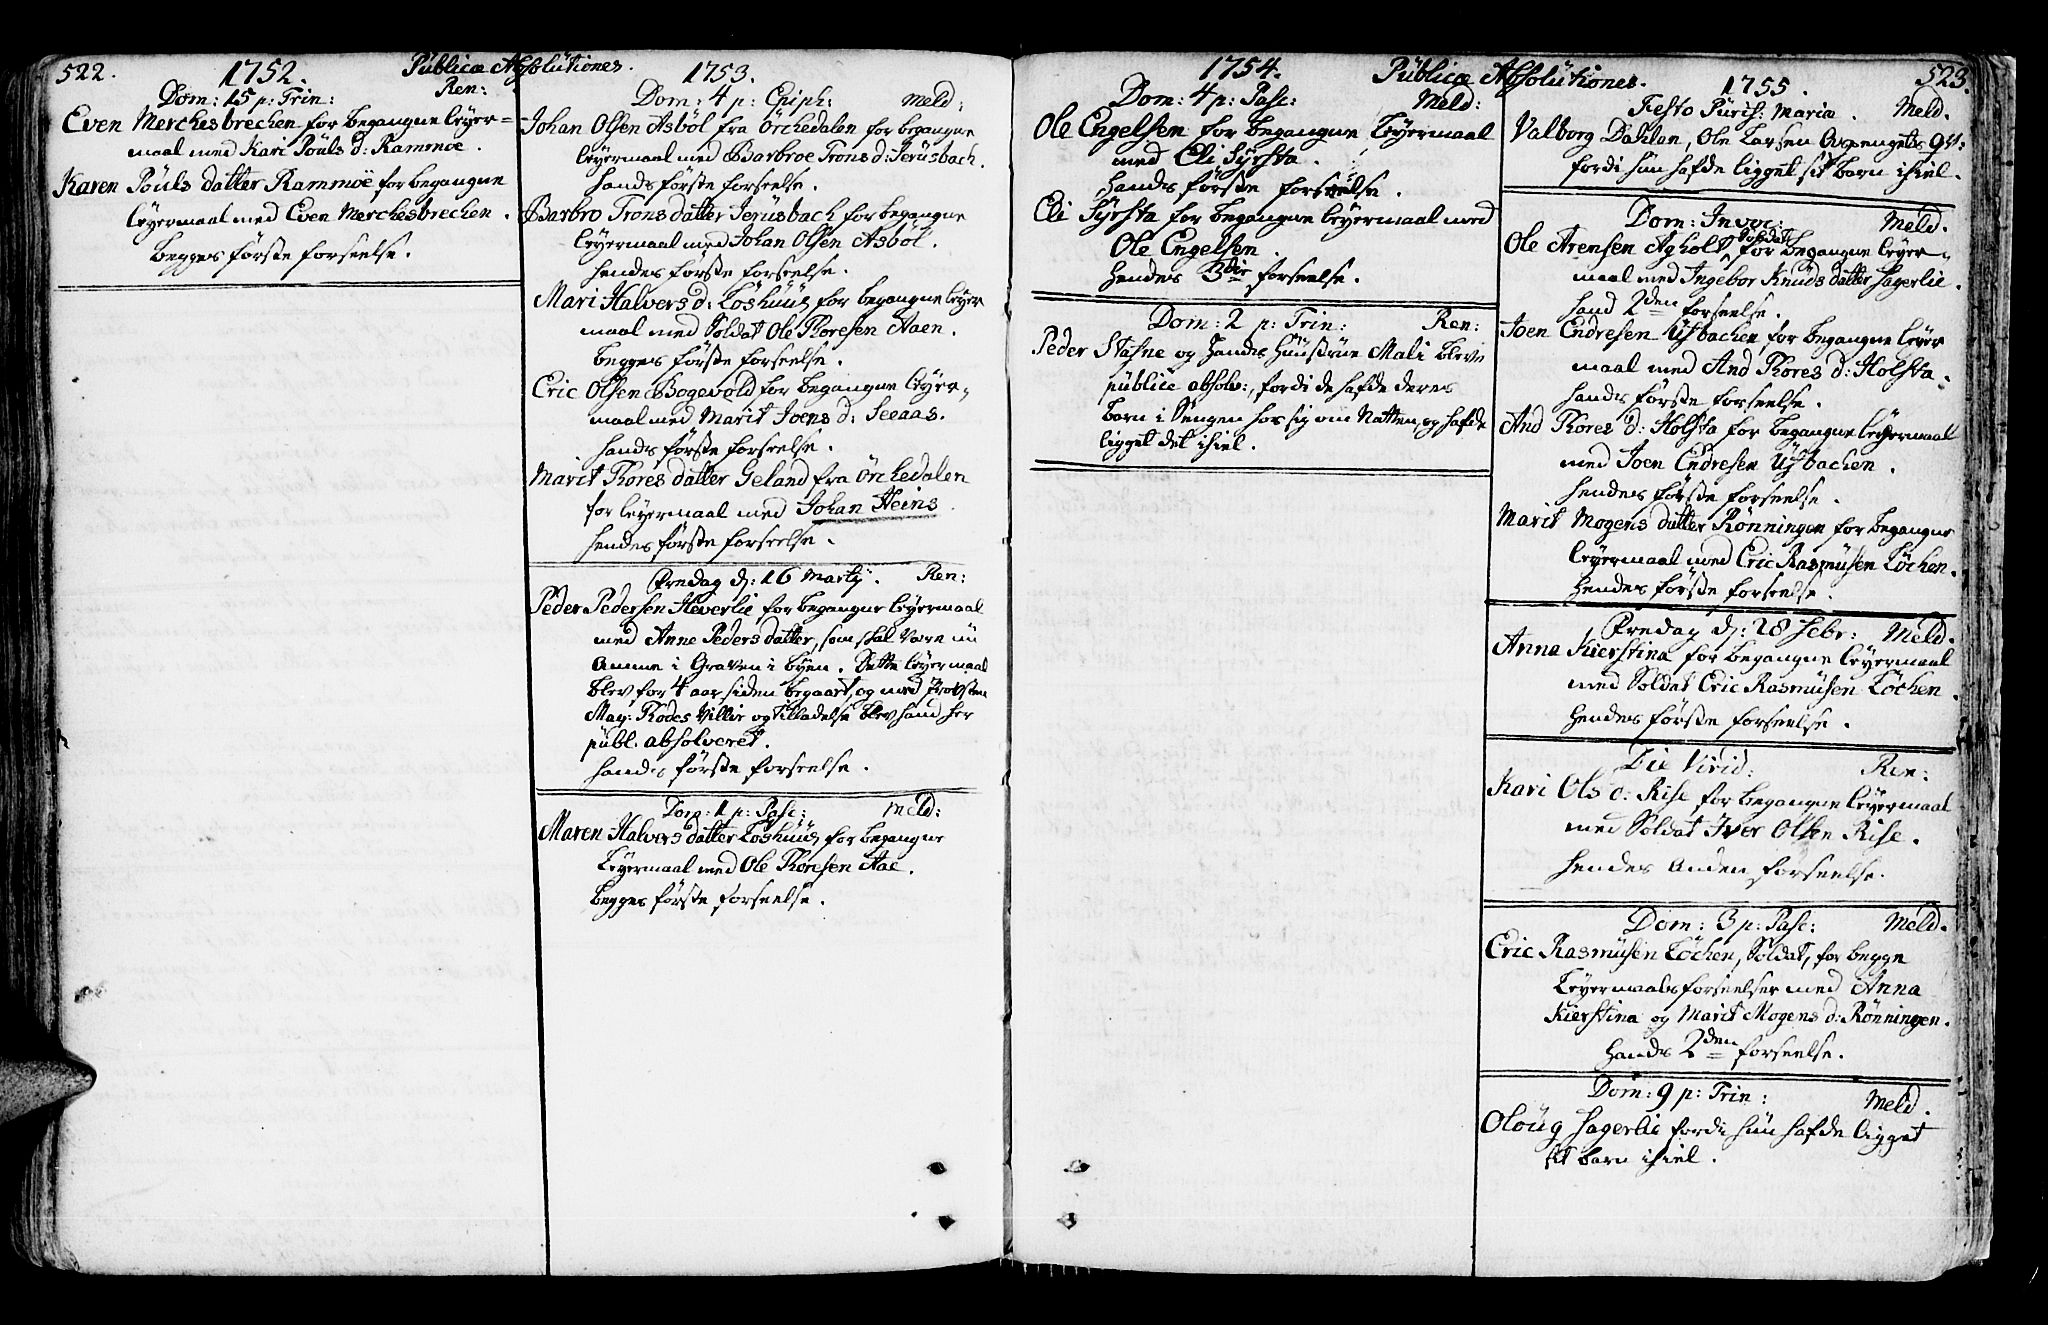 522.
1752. Publicæ Absolutiones.
Dom: 15 p: Trin: Ren:
Even Merchesbrechen for begangne leyer-
maal med Kari Pouls d: Rammoe.
Karen Pouls datter Rammoe for begangne
leyermaal med Even Merchesbrechen.
begges første forseelse.
1753.
Dom: 4 p: Epiph: Meld:
Johan Olsen Asböl fra Örchedalen for begangne
leyermaal med Barbroe Trons d: Jerusbach.
hands første forseelse.
Barbro Trons datter Jerusbach for begangne
leyermaal med Johan Olsen Asböl.
hendes første forseelse.
Mari Halvers d: Löshuus for begangne leyer
maal med Soldat Ole Thoresen Aaen.
begges første forseelse.
Eric Olsen Bogevold for begangne leyer-
maal med Marit Joens d: Seeaas.
hands første forseelse.
Marit Thores datter Geland fra Örchedalen
for leyermaal med Johan Heins.
hendes første forseelse.
Fredag d: 16 Martij. Ren:
Peder Pedersen Heverlie for begangne leyermaal
med Anne Peders datter, som skal være nu
Amme i Graven i byen. Dette leyermaal
blev for 4 aar siden begaaet, og med Provsten
Mag: Rodes Villie og tilladelse blev hand her
publ. absolveret.
hands første forseelse.
Dom: 1 p: Pasc: Meld:
Maren Halvers datter Löshuus for begangne
Leyermaal med Ole Thoresen Aae.
begges første forseelse.
1754. Publicæ Absolutiones. 523.
Dom: 4 p: Pasc: Meld:
Ole Engelsen for begangne Leyermaal
med Eli Syrsta.
hands første forseelse.
Eli Syrsta for begangne leyermaal med
Ole Engelsen.
hendes 3die forseelse.
Dom: 2 p: Trin: Ren:
Peder Stafne og hands hüustrüe Mali bleve
publice absolv:, fordi de hafde deres
barn i Sengen hos sig om Natten, og hafde
ligget det ihiel.
1755.
Festo Purif: Mariæ. Meld.
Valborg Dahlan, Ole Larsen
fordi hun hafde ligget sit barn ihiel.
Dom: Invoc: Meld.
Ole Arensen Agholt Soldat for begangne leyer-
maal med Ingebor Knuds datter Hagerlie.
hand 2den forseelse.
Joen Endresen Usbachen for begangne leyer
maal med And Thores d: Holsta.
hands første forseelse.
And Thores d: Holsta for begangne leyermaal
med Joen Endresen Usbachen.
hendes første forseelse.
Marit Mogens datter Rönningen for begangne
leyermaal med Eric Rasmusen Löchen.
hendes første forseelse.
Fredag d: 28 Febr: Meld.
Anna Kierstina for begangne leyermaal
med Soldat Eric Rasmusen Löchen.
hendes første forseelse.
Die Virid: Ren:
Kari Ols d: Rise for begangne leyermaal
med Soldat Iver Olsen Rise.
hendes anden forseelse.
Dom: 3 p: Pasc: Meld.
Eric Rasmusen Löchen, Soldat, for begge
Leyermaals forseelser med Anna
Kierstina og Marit Mogens d: Rönningen.
hands 2den forseelse.
Dom: 9 p: Trin: Meld.
Oloug Hagerlie fordi hun hafde ligget
sit barn ihiel.